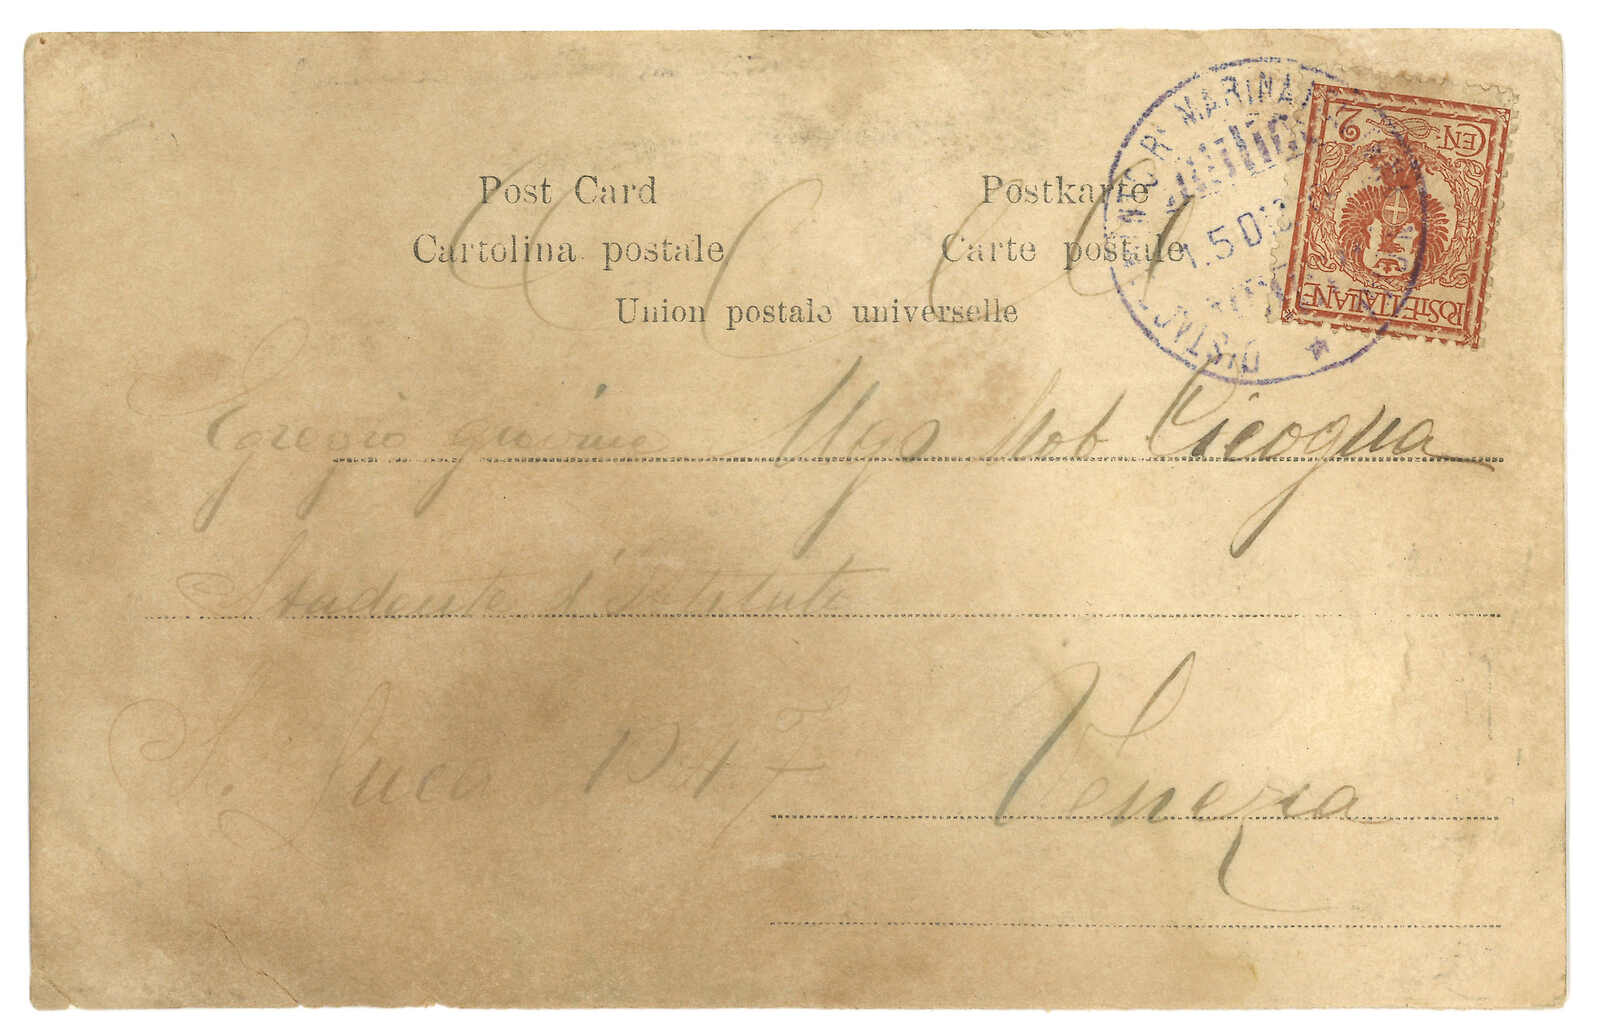 Post Card Postkarte
Cartolina postale Carte postale
Union postale universelle
DISTACCAMENTO R. MARINA
1.5.0
CEN. 2
POSTE ITALIANE
C C C C
Egregio giovine Ugo Nob Cicogna
Studente d'Istituto
S. Luca Venezia